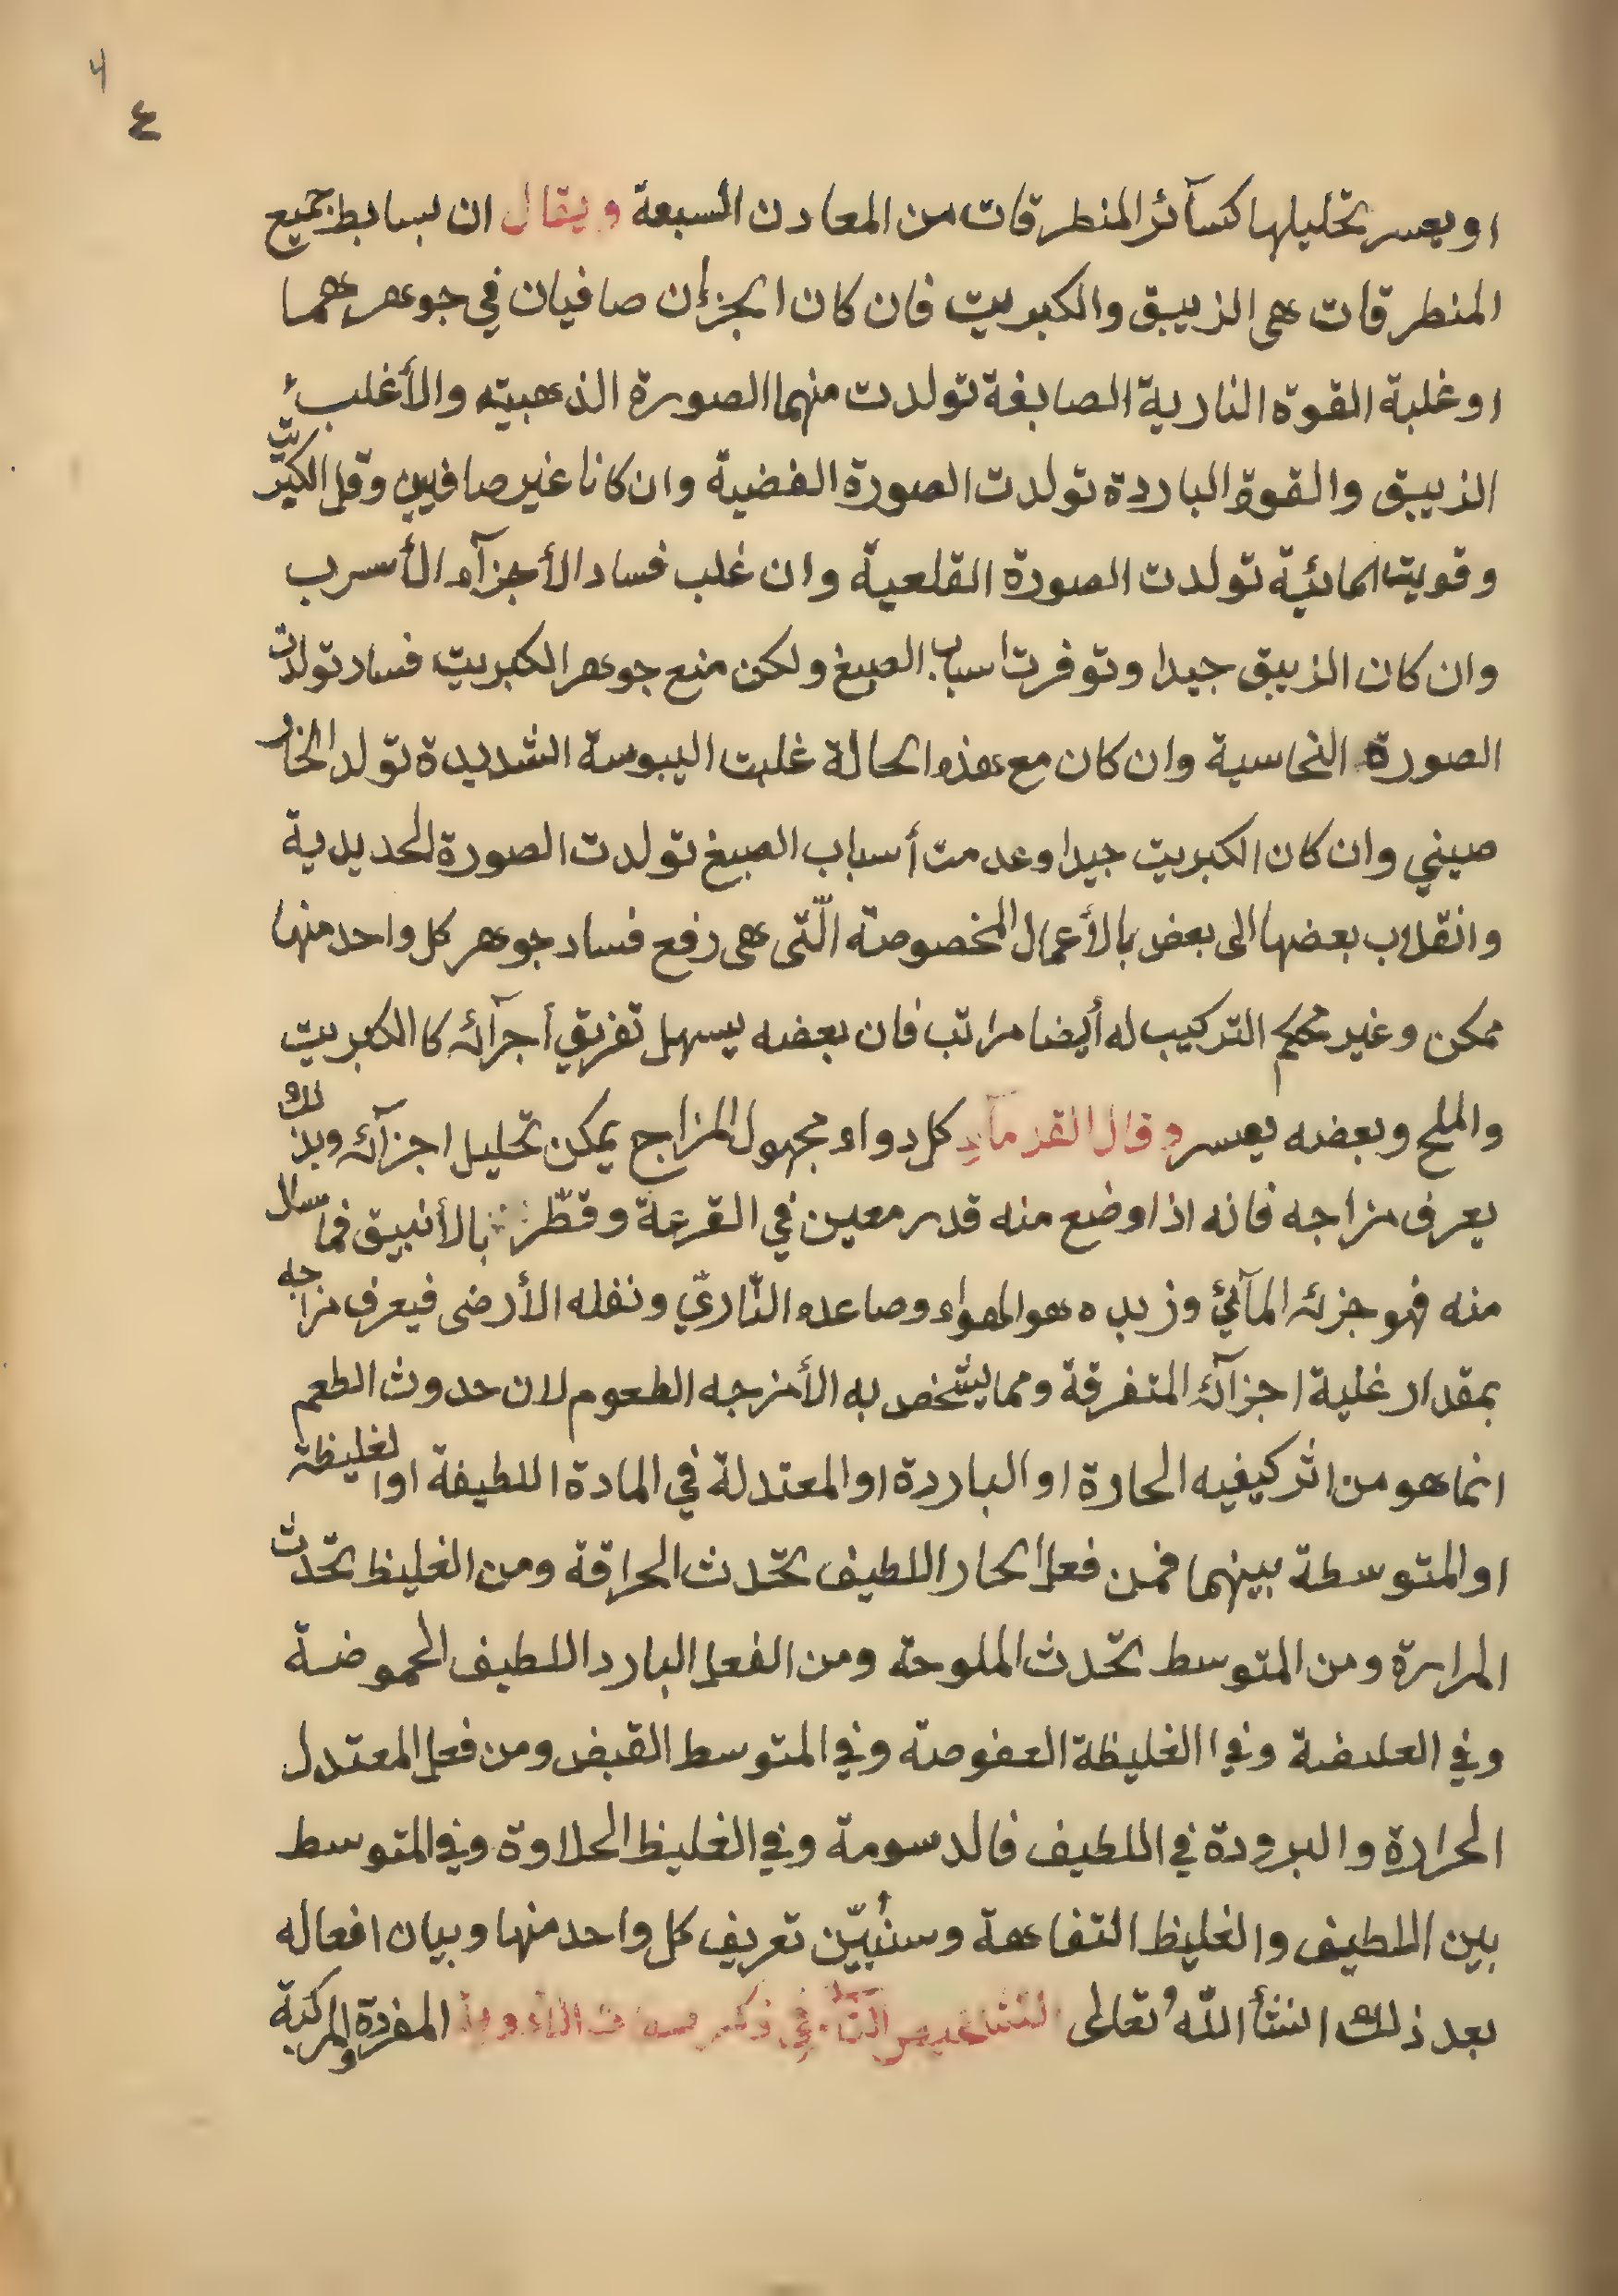 ٤
٤
او يعسر تحليلها كسآئر المنطرقات من المعادن السبعة ويقال ان بسايط جميع
المنطرقات هى الزيبق والكبريت فان كان الجزأن صافيان في جوهرهما
او غلبة القوة النارية الصابغة تولدت منهما الصورة الذهبيته والأغلب
الزيبق والقوة الباردة تولدت الصورة الفضية وان كانا غير صافيين وقل الكبريت
وقويت المائية تولدت الصورة القلعية وان غلب فساد الأجزآء الأسرب
وان كان الزيبق جيدا وتوفرت اسباب الصبغ ولكن منع جوهر الكبريت فساد تولدت
الصورة النحاسية وان كان مع هذه الحالة غلبت اليبوسة الشديدة تولد الخار
صيني وان كان الكبريت جيدا وعدمت أسباب الصبغ تولدت الصورة الحديدية
وانقلاب بعضها الى بعض بالأعمال المخصوصة الّتى هى رفع فساد جوهر كل واحد منها
ممكن وغير محكم التركيب له أيضا مراتب فان بعضه يسهل تفريق أجزآئه كالكبريت
والملح وبعضه يعسر وقال القدمآء كل دواء مجهول المزاج يمكن تحليل اجزآئه وبذلك
يعرف مزاجه فانه اذا وضع منه قدر معين في القرعة وقطّر بالأنبيق فما سال
منه فهو جزئه المآئيّ وزبده هو الهواء وصاعده النّاريّ وثفله الأرضى فيعرف مزاجه
بمقدار غلبة اجزآئه المتفرقة ومما يشخص به الأمزجه الطعوم لان حدوث الطعم
انما هو من اثر كيفيه الحارة او الباردة او المعتدلة في المادة اللطيفة او الغليظة
او المتوسطة بينهما فمن فعل الحار اللطيف تحدث الحراقة ومن الغليظ تحدث
المرارة ومن المتوسط تحدث الملوحة ومن الفعل البارد اللطيف الحموضة
وفي الغليظة العفوصة وفي المتوسط القبض ومن فعل المعتدل
الحرارة والبرودة في اللطيف فالدسومة وفي الغليظ الحلاوة وفي المتوسط
بين اللطيف والغليظ التفاهة وسنُبيّن تعريف كل واحد منها وبيان افعاله
بعد ذلك انشأ اللّه تعالى في ذكر الأدوية المفردة والمركبة